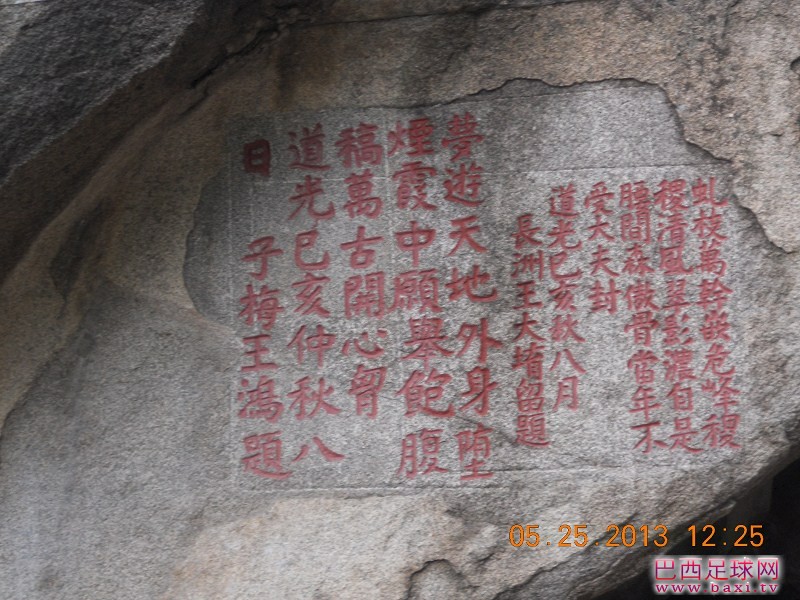 虬枝萬幹嵌危峰稷
稷清風翠影濃自是
腰間森傲骨當年不
受大夫封
道光己亥秋八月
長洲王大堉留題
夢遊天地外身墮
煙霞中願舉飽腹
稿萬古開心胷
道光己亥仲秋八
日
子梅王鴻題
05.25.2013 12:25
巴西足球网
www.baxi.tv